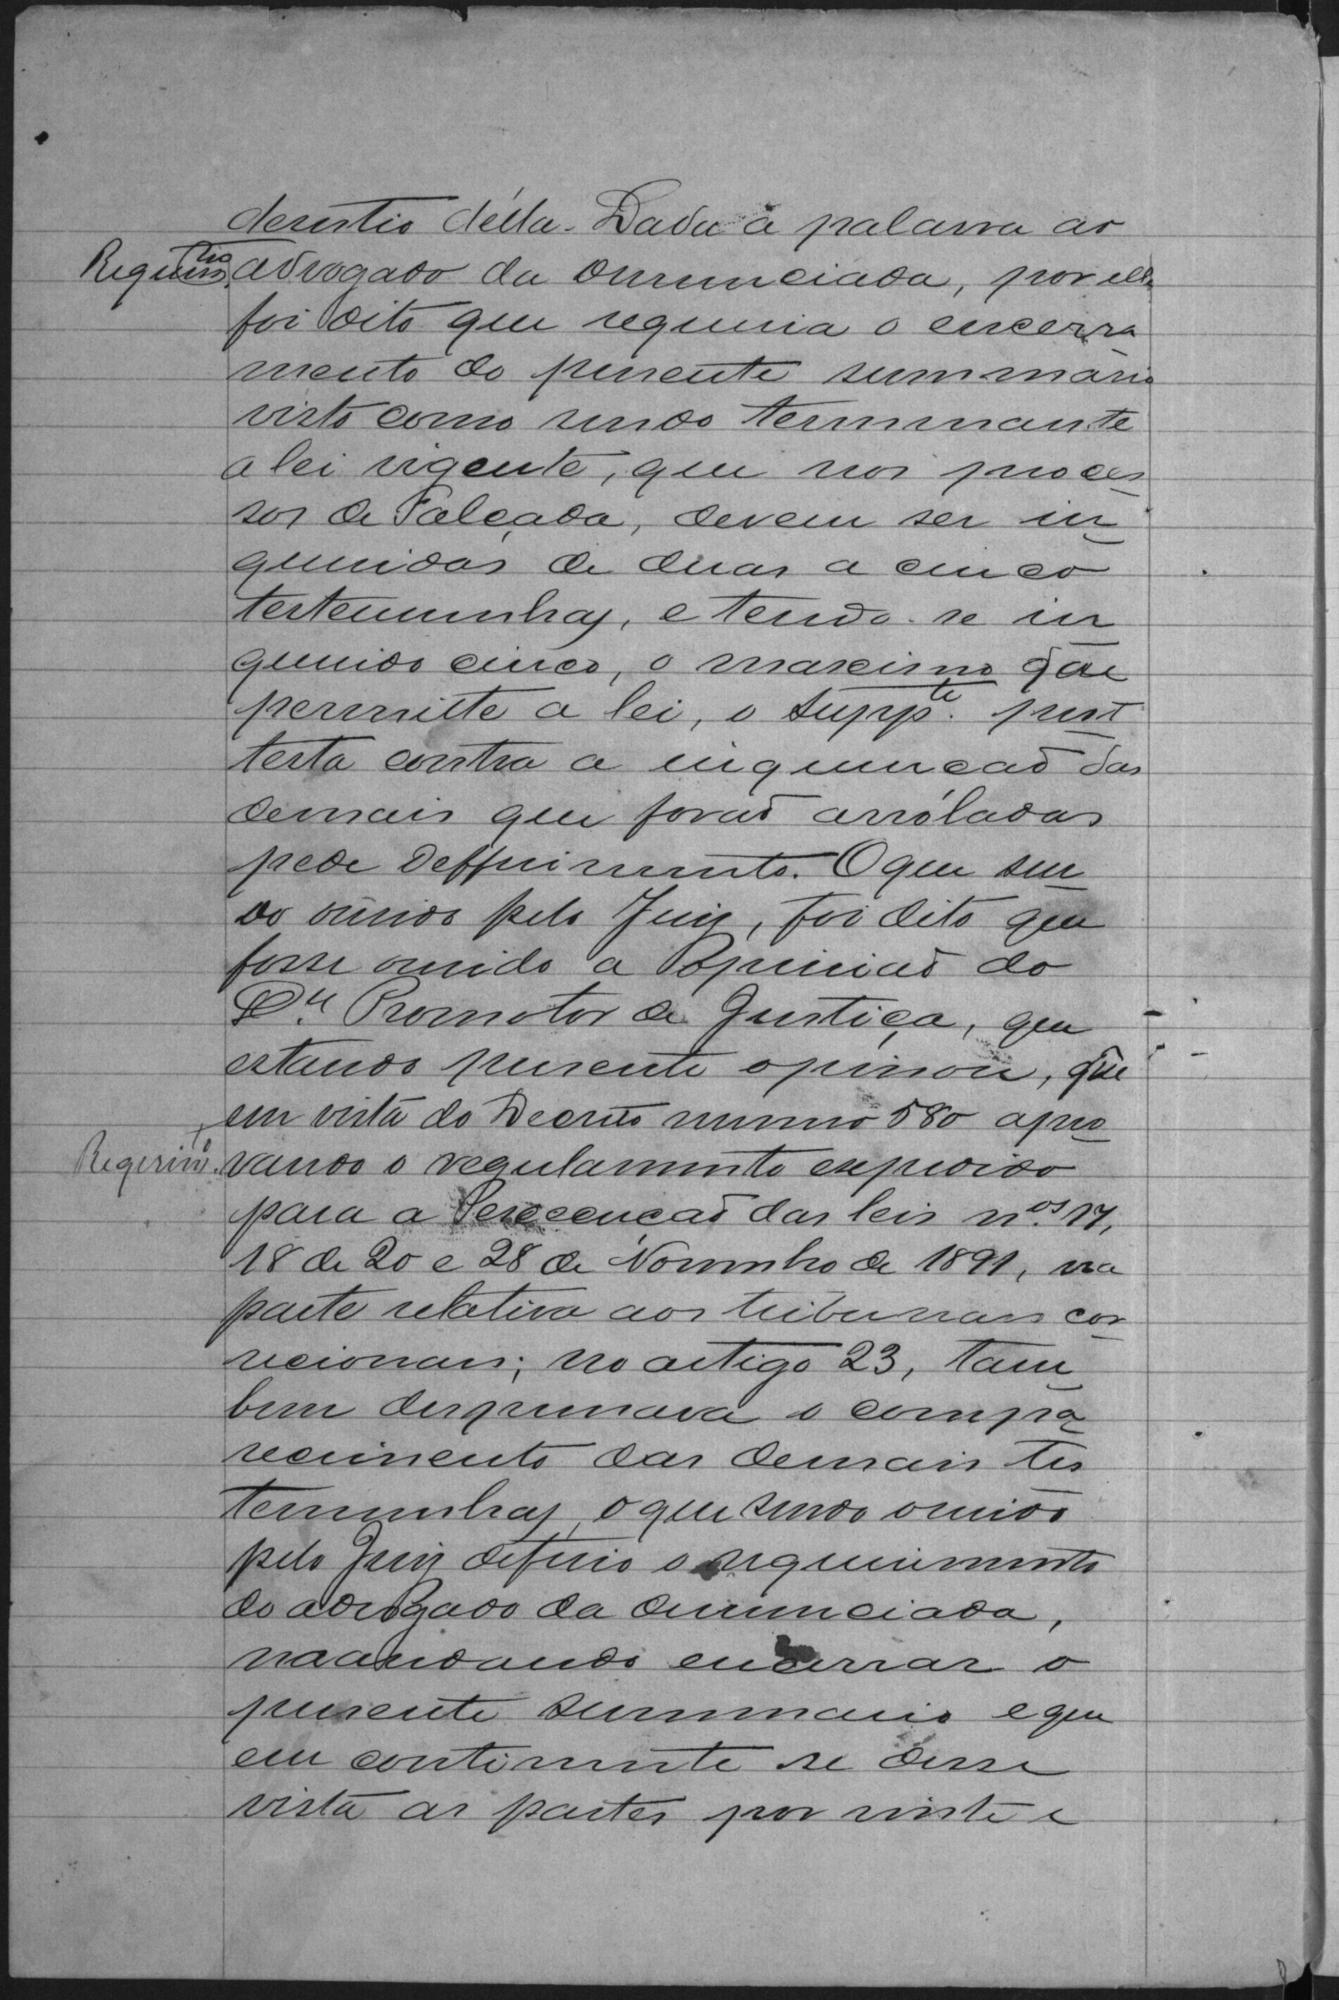 desistio délla. Dada a palavra ao
Requerimto advogado da denunciada, por elle
foi dito que requeria o encerra
mento do presente summario
visto como sendo terminante
a lei vigente, que nos proces
sos de alçada, devem ser in
queridas de duas a cinco
testemunhas, e tendo-se in
querido cinco, o maximo que
permitte a lei, o suppte. pro
testa contra a inquirição das
demais que forão arróladas
pede defferimento. O que sen
do ouvido pelo Juiz, foi dito que
fosse ouvido a opinião do
Dr. Promotor de Justiça, que
estando presente opinou, que
em vista do Decreto numero 580 apro
Requerimto. vando o regulamento expedido
para a execução das leis nos. 17,
18 de 20 e 28 de Novembro de 1891, na
parte relativa aos tribunaes cor
recionaes; no artigo 23, tam
bem despensava o compa
recimento das demais tes
temunhas, o que sendo ouvido
pelo Juiz deferio o requerimento
do advogado da denunciada,
mandando encerrar o
presente summario e que
em continente se desse
vista as partes por vinte e